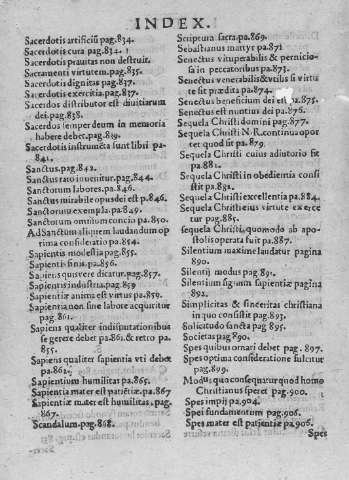 INDEX.
Sacerdotis artificiũ pag.834.
Sacerdotis cura pag.834.
Sacerdotis prauitas non destruit.
Sacramenti virtutem.pag.835.
Sacerdotis dignitas pag.837.
Sacerdotis exercitia pag.837.
Sacerdos distributor est diuitiarum
dei.pag.838.
Sacerdos semper deum in memoria
habere debet.pag.839.
Sacerdotis instrumẽta sunt libri pa-
841.
Sanctus.pag.842.
Sanctus raro inuenitur.pag.844.
Sanctorum labores.pa.846.
Sanctus mirabile opus dei est pa.846.
Sanctorum exempla pa.849.
Sanctorum omnium concio pa.850.
Ad Sanctum aliquem laudandum op
tima consideratio pa.854.
Sapientis modestia pag.855.
Sapientis finis.pa.856.
Sapiens quis vere dicatur.pag.857.
Sapientis industria.pag.859
Sapientiæ anima est virtus pa.859.
Sapientia non sine labore acquiritur
pag.861.
Sapiens qualiter in disputationibus
se gerere debet pa.861.& retro pa.
855.
Sapiens qualiter sapientia vti debet
pa.862.
Sapientium humilitas pa.865.
Sapientia mater est patiẽtiæ.pa.867
Sapientiæ mater est humilitas.pag.
867.
Scandalum.pag.868.
Scriptura sacra.pa.869.
Sebastianus martyr pa.871
Senectus vituperabilis & pernicio-
sa in peccatoribus pa.873.
Senectus venerabilis & vtilis si virtu
te sit prædita pa.874.
Senectus beneficium dei est pa.875.
Senectus est nuntius dei pa.876.
Sequela Christi domini pag.877.
Sequela Christi N.R. continua opor
tet quod sit pa.879.
Sequela Christi cuius adiutorio fit
pa.881.
Sequela Christi in obedientia consi
stit pa.892.
Sequela Christi excellentia pa.884.
Sequela Christi eius virtute exerce
tur pag.885.
Sequela Christi, quomodo ab apo-
stolis operata fuit pa.887.
Silentium maxime laudatur pagina
890.
Silentij modus pag.891.
Silentium signum sapientiæ pagina
892.
Simplicitas & sinceritas christiana
in quo consistit pag.893.
Solicitudo sancta pag 895.
Societas pag.890.
Spes quibus ornari debet pag. 897.
Spes optima consideratione fulcitur
pag.899.
Modus quo consequatur quod homo
Christianus speret pag.900.
Spes impij pa.904.
Spei fundamentum pag.906.
Spes mater est patientiæ pa.906.
Spes